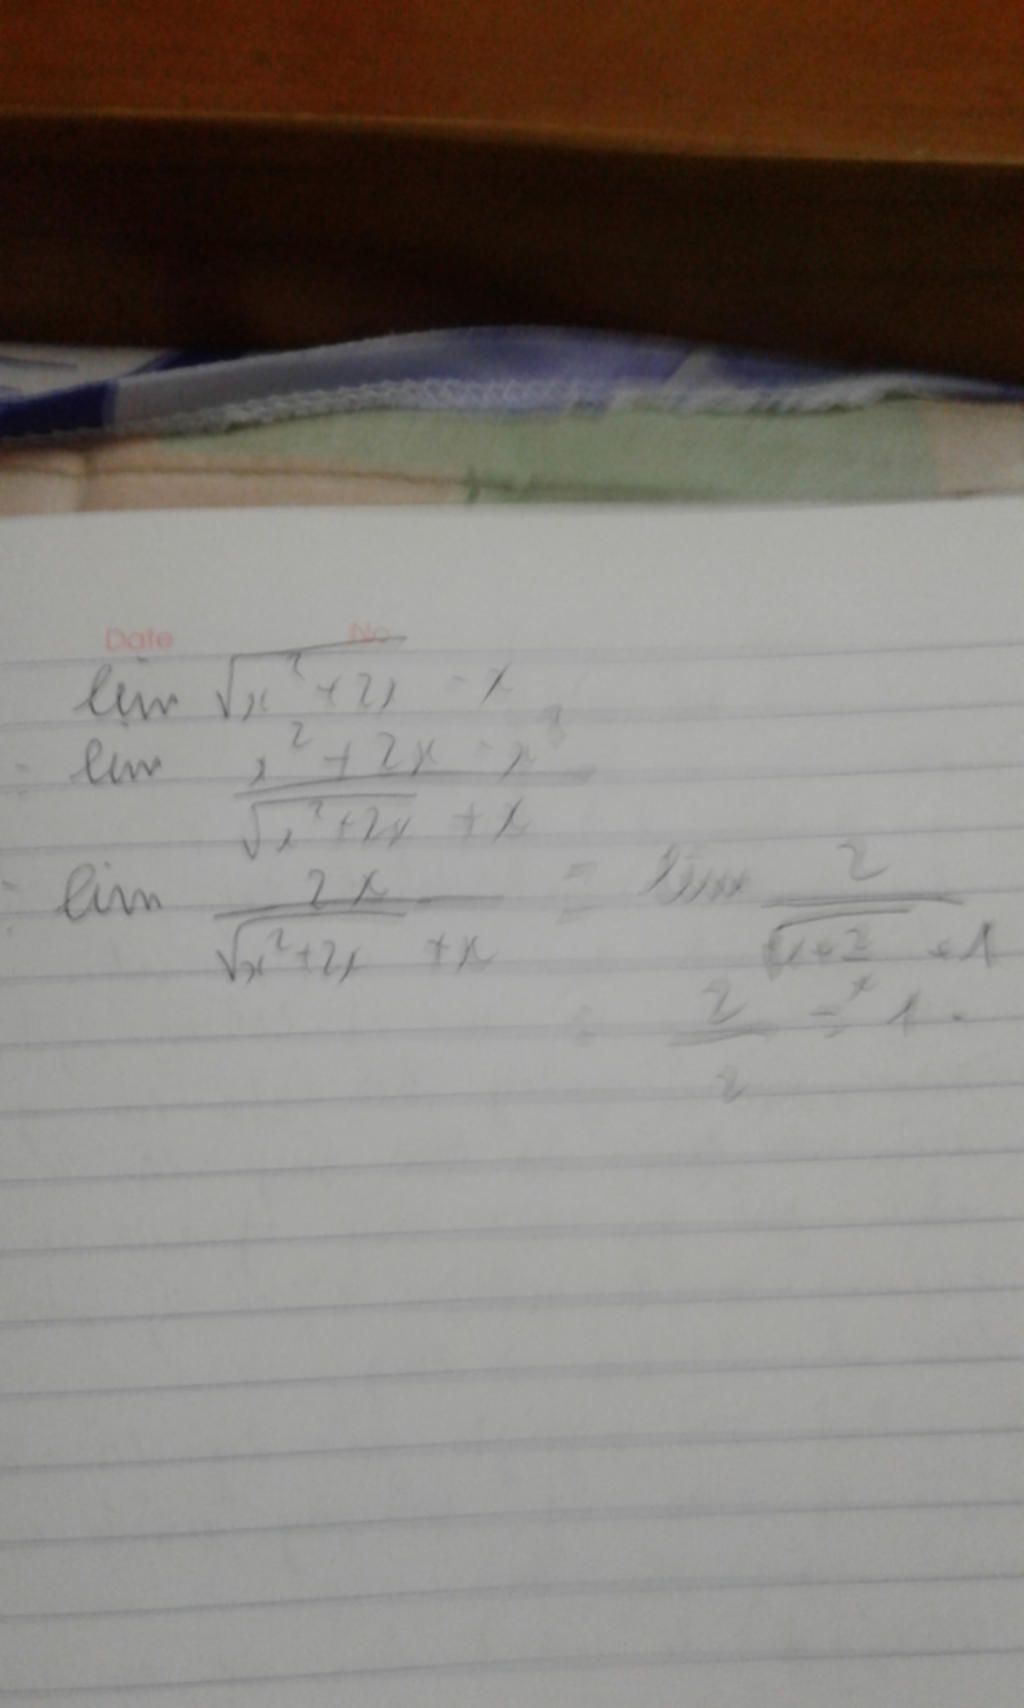 Date No
lim √(x²+2x) - x
= lim (x² + 2x - x²)/(√(x²+2x) + x)
= lim 2x/(√(x²+2x) + x) = lim 2/(√(1+2/x) + 1)
= 2/2 = 1.